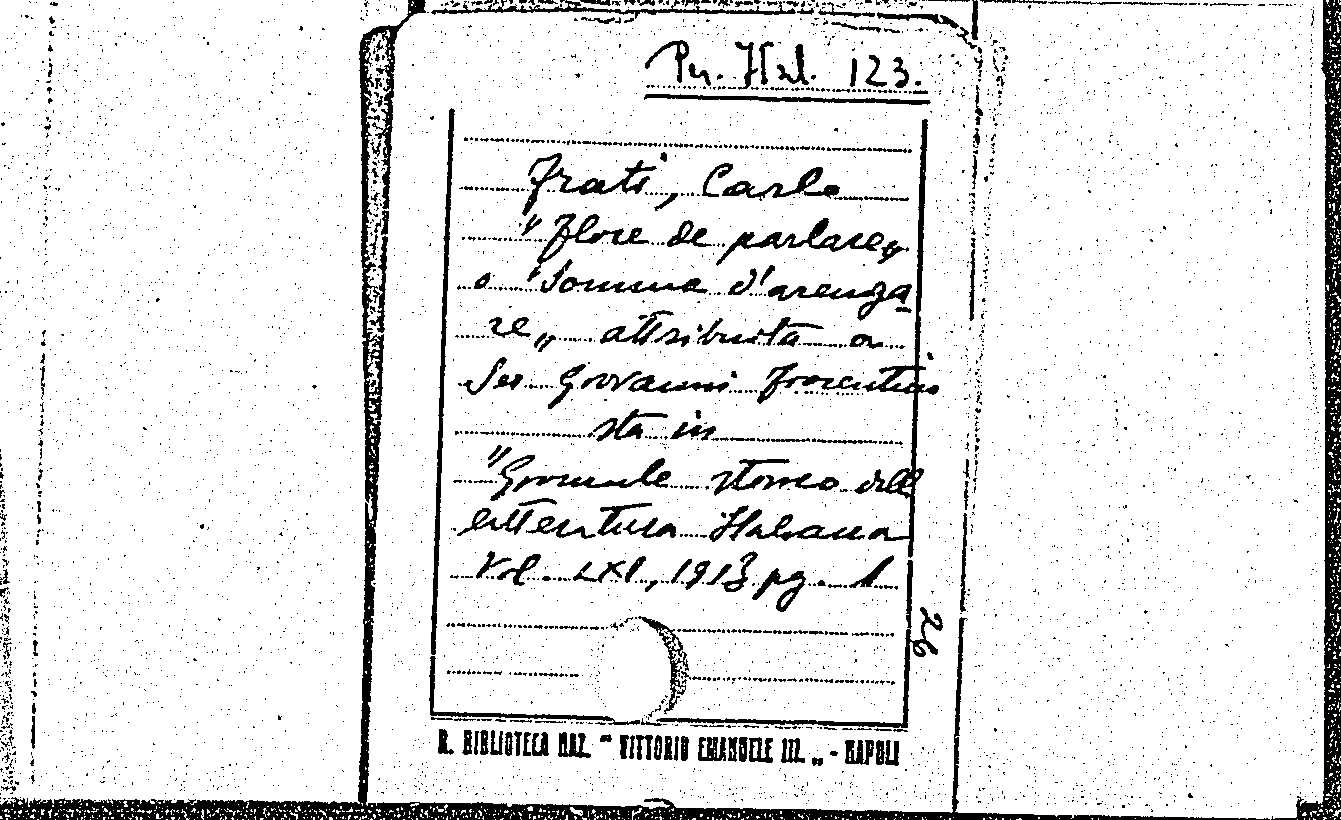 Per. Ital. 123.
Frati, Carlo
"Flore de parlare„
o "Somma d'arenga
re„ attribuita a
Ser Giovanni fiorentino
sta in
"Giornale storico dell
letteratura Italiana
Vol. LXI, 1913 pg. 1
26
R. BIBLIOTECA NAZ. “ VITTORIO EMANUELE III. „ - NAPOLI